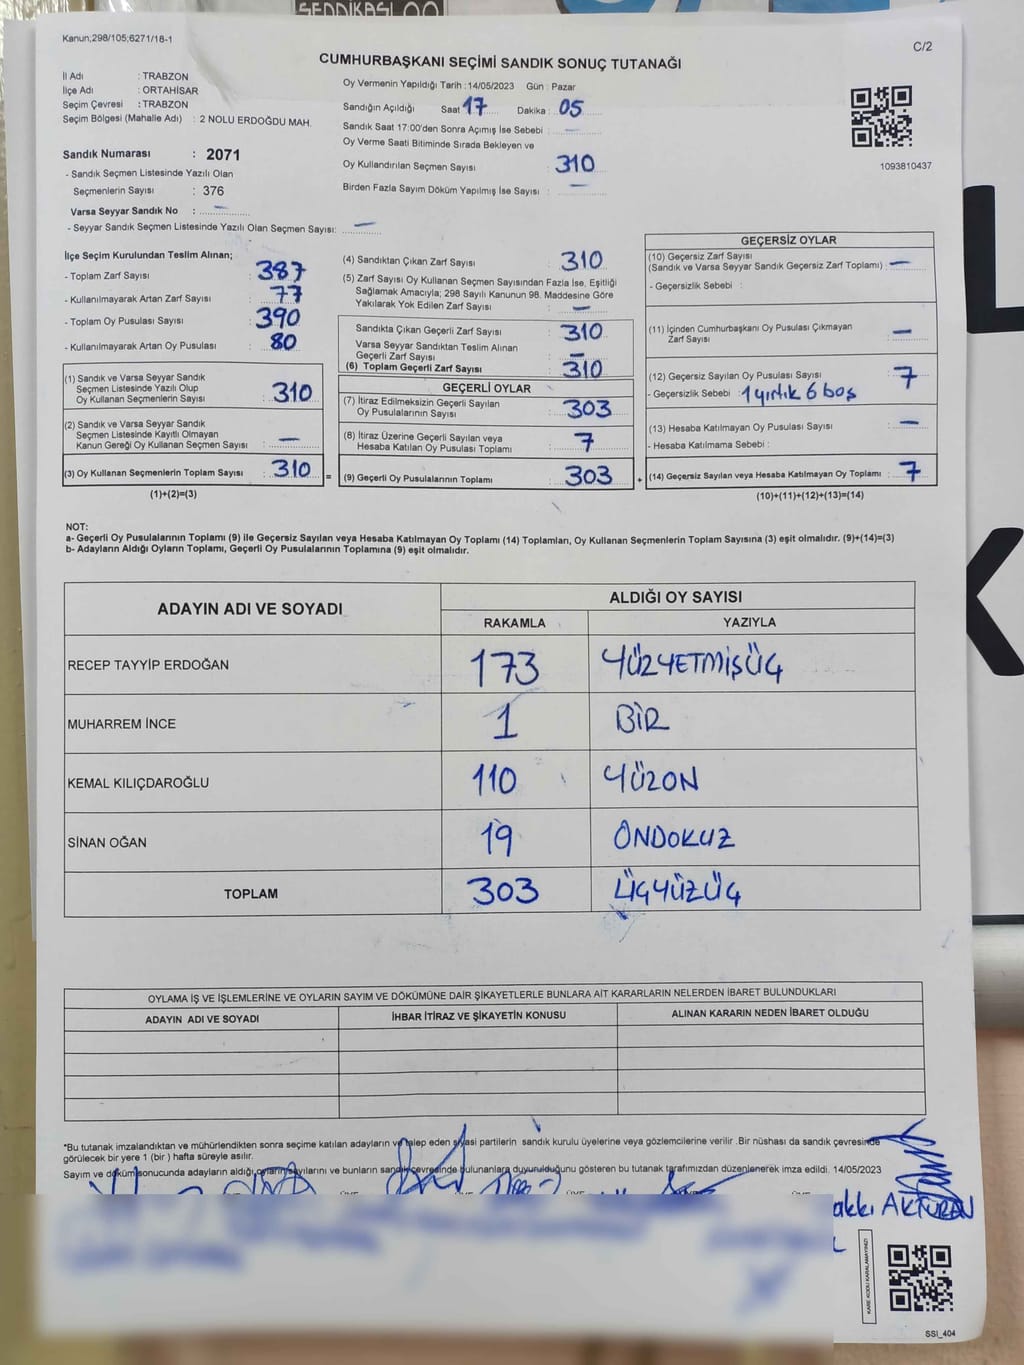 SENDİKASI
Kanun;298/105;6271/18-1
C/2
CUMHURBAŞKANI SEÇİMİ SANDIK SONUÇ TUTANAĞI
İl Adı : TRABZON
İlçe Adı : ORTAHİSAR
Seçim Çevresi : TRABZON
Seçim Bölgesi (Mahalle Adı) : 2 NOLU ERDOĞDU MAH.
Sandık Numarası : 2071
- Sandık Seçmen Listesinde Yazılı Olan
Seçmenlerin Sayısı : 376
Varsa Seyyar Sandık No : —
- Seyyar Sandık Seçmen Listesinde Yazılı Olan Seçmen Sayısı: —
Oy Vermenin Yapıldığı Tarih :14/05/2023 Gün : Pazar
Sandığın Açıldığı Saat 17 Dakika : 05
Sandık Saat 17:00'den Sonra Açımış İse Sebebi : —
Oy Verme Saati Bitiminde Sırada Bekleyen ve
Oy Kullandırılan Seçmen Sayısı : 310
Birden Fazla Sayım Döküm Yapılmış İse Sayısı : —
1093810437
İlçe Seçim Kurulundan Teslim Alınan;
- Toplam Zarf Sayısı : 387
- Kullanılmayarak Artan Zarf Sayısı : 77
- Toplam Oy Pusulası Sayısı : 390
- Kullanılmayarak Artan Oy Pusulası : 80
(1) Sandık ve Varsa Seyyar Sandık
Seçmen Listesinde Yazılı Olup
Oy Kullanan Seçmenlerin Sayısı : 310
(2) Sandık ve Varsa Seyyar Sandık
Seçmen Listesinde Kayıtlı Olmayan
Kanun Gereği Oy Kullanan Seçmen Sayısı : —
(3) Oy Kullanan Seçmenlerin Toplam Sayısı : 310
(1)+(2)=(3)
=
(4) Sandıktan Çıkan Zarf Sayısı : 310
(5) Zarf Sayısı Oy Kullanan Seçmen Sayısından Fazla İse, Eşitliği
Sağlamak Amacıyla; 298 Sayılı Kanunun 98. Maddesine Göre
Yakılarak Yok Edilen Zarf Sayısı : —
Sandıkta Çıkan Geçerli Zarf Sayısı : 310
Varsa Seyyar Sandıktan Teslim Alınan
Geçerli Zarf Sayısı : —
(6) Toplam Geçerli Zarf Sayısı : 310
GEÇERLİ OYLAR
(7) İtiraz Edilmeksizin Geçerli Sayılan
Oy Pusulalarının Sayısı : 303
(8) İtiraz Üzerine Geçerli Sayılan veya
Hesaba Katılan Oy Pusulası Toplamı : 7
(9) Geçerli Oy Pusulalarının Toplamı : 303
+
GEÇERSİZ OYLAR
(10) Geçersiz Zarf Sayısı
(Sandık ve Varsa Seyyar Sandık Geçersiz Zarf Toplamı) : —
- Geçersizlik Sebebi :
(11) İçinden Cumhurbaşkanı Oy Pusulası Çıkmayan
Zarf Sayısı : —
(12) Geçersiz Sayılan Oy Pusulası Sayısı : 7
- Geçersizlik Sebebi : 1 yırtık 6 boş
(13) Hesaba Katılmayan Oy Pusulası Sayısı : —
- Hesaba Katılmama Sebebi :
(14) Geçersiz Sayılan veya Hesaba Katılmayan Oy Toplamı : 7
(10)+(11)+(12)+(13)=(14)
NOT:
a- Geçerli Oy Pusulalarının Toplamı (9) ile Geçersiz Sayılan veya Hesaba Katılmayan Oy Toplamı (14) Toplamları, Oy Kullanan Seçmenlerin Toplam Sayısına (3) eşit olmalıdır. (9)+(14)=(3)
b- Adayların Aldığı Oyların Toplamı, Geçerli Oy Pusulalarının Toplamına (9) eşit olmalıdır.
ADAYIN ADI VE SOYADI
ALDIĞI OY SAYISI
RAKAMLA YAZIYLA
RECEP TAYYİP ERDOĞAN 173 YÜZYETMİŞÜÇ
MUHARREM İNCE 1 BİR
KEMAL KILIÇDAROĞLU 110 YÜZON
SİNAN OĞAN 19 ONDOKUZ
TOPLAM 303 ÜÇYÜZÜÇ
OYLAMA İŞ VE İŞLEMLERİNE VE OYLARIN SAYIM VE DÖKÜMÜNE DAİR ŞİKAYETLERLE BUNLARA AİT KARARLARIN NELERDEN İBARET BULUNDUKLARI
ADAYIN ADI VE SOYADI İHBAR İTİRAZ VE ŞİKAYETİN KONUSU ALINAN KARARIN NEDEN İBARET OLDUĞU
*Bu tutanak imzalandıktan ve mühürlendikten sonra seçime katılan adayların ve talep eden siyasi partilerin sandık kurulu üyelerine veya gözlemcilerine verilir .Bir nüshası da sandık çevresinde
görülecek bir yere 1 (bir ) hafta süreyle asılır.
Sayım ve döküm sonucunda adayların aldığı oyların sayılarını ve bunların sandık çevresinde bulunanlara duyurulduğunu gösteren bu tutanak tarafımızdan düzenlenerek imza edildi. 14/05/2023
akkı AKTURAN
KARE KODU KARALAMAYINIZ!
SSI_404